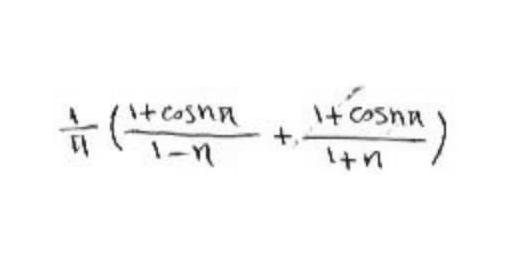 \frac{1}{\pi} \left( \frac{1+\cos n\pi}{1-n} + \frac{1+\cos n\pi}{1+n} \right)